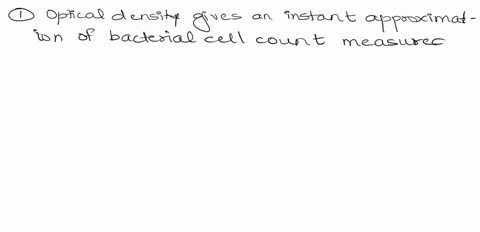 ① Optical density gives an instant approximat-
ion of bacterial cell count measures